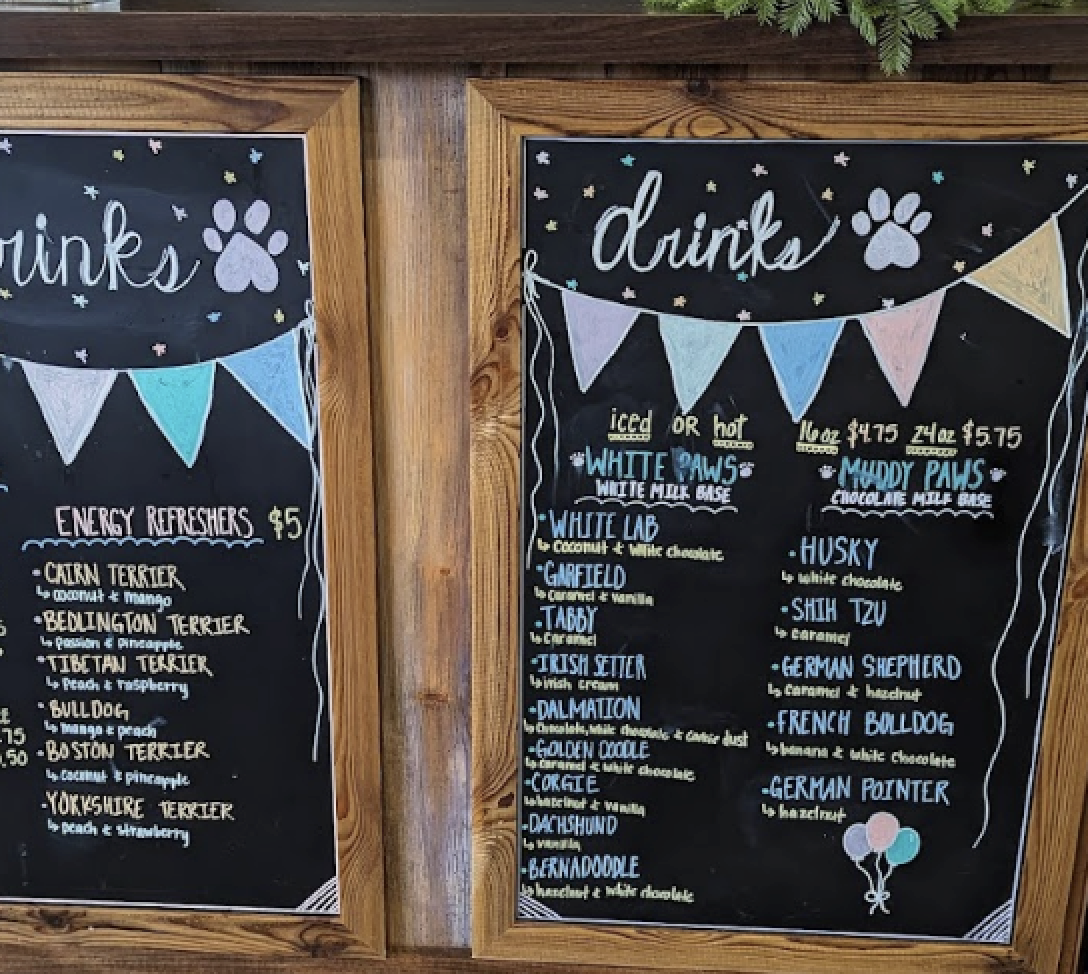 drinks
ENERGY REFRESHERS $5
• CAIRN TERRIER
↳ coconut & mango
• BEDLINGTON TERRIER
↳ passion & pineapple
• TIBETAN TERRIER
↳ peach & raspberry
• BULLDOG
↳ mango & peach
• BOSTON TERRIER
↳ coconut & pineapple
• YORKSHIRE TERRIER
↳ peach & strawberry
.75
.50
drinks
iced OR hot 16 oz $4.75 24 oz $5.75
WHITE PAWS
WHITE MILK BASE
• WHITE LAB
↳ Coconut & White chocolate
• GARFIELD
↳ Caramel & Vanilla
• TABBY
↳ Caramel
• IRISH SETTER
↳ irish cream
• DALMATION
↳ Chocolate, white chocolate &
• GOLDEN DOODLE
↳ Caramel & white chocolate
• CORGIE
↳ hazelnut & vanilla
• DACHSHUND
↳ vanilla
• BERNADOODLE
↳ hazelnut & white chocolate
MUDDY PAWS
CHOCOLATE MILK BASE
• HUSKY
↳ white chocolate
• SHIH TZU
↳ caramel
• GERMAN SHEPHERD
↳ Caramel & hazelnut
• FRENCH BULLDOG
↳ banana & white chocolate
• GERMAN POINTER
↳ hazelnut